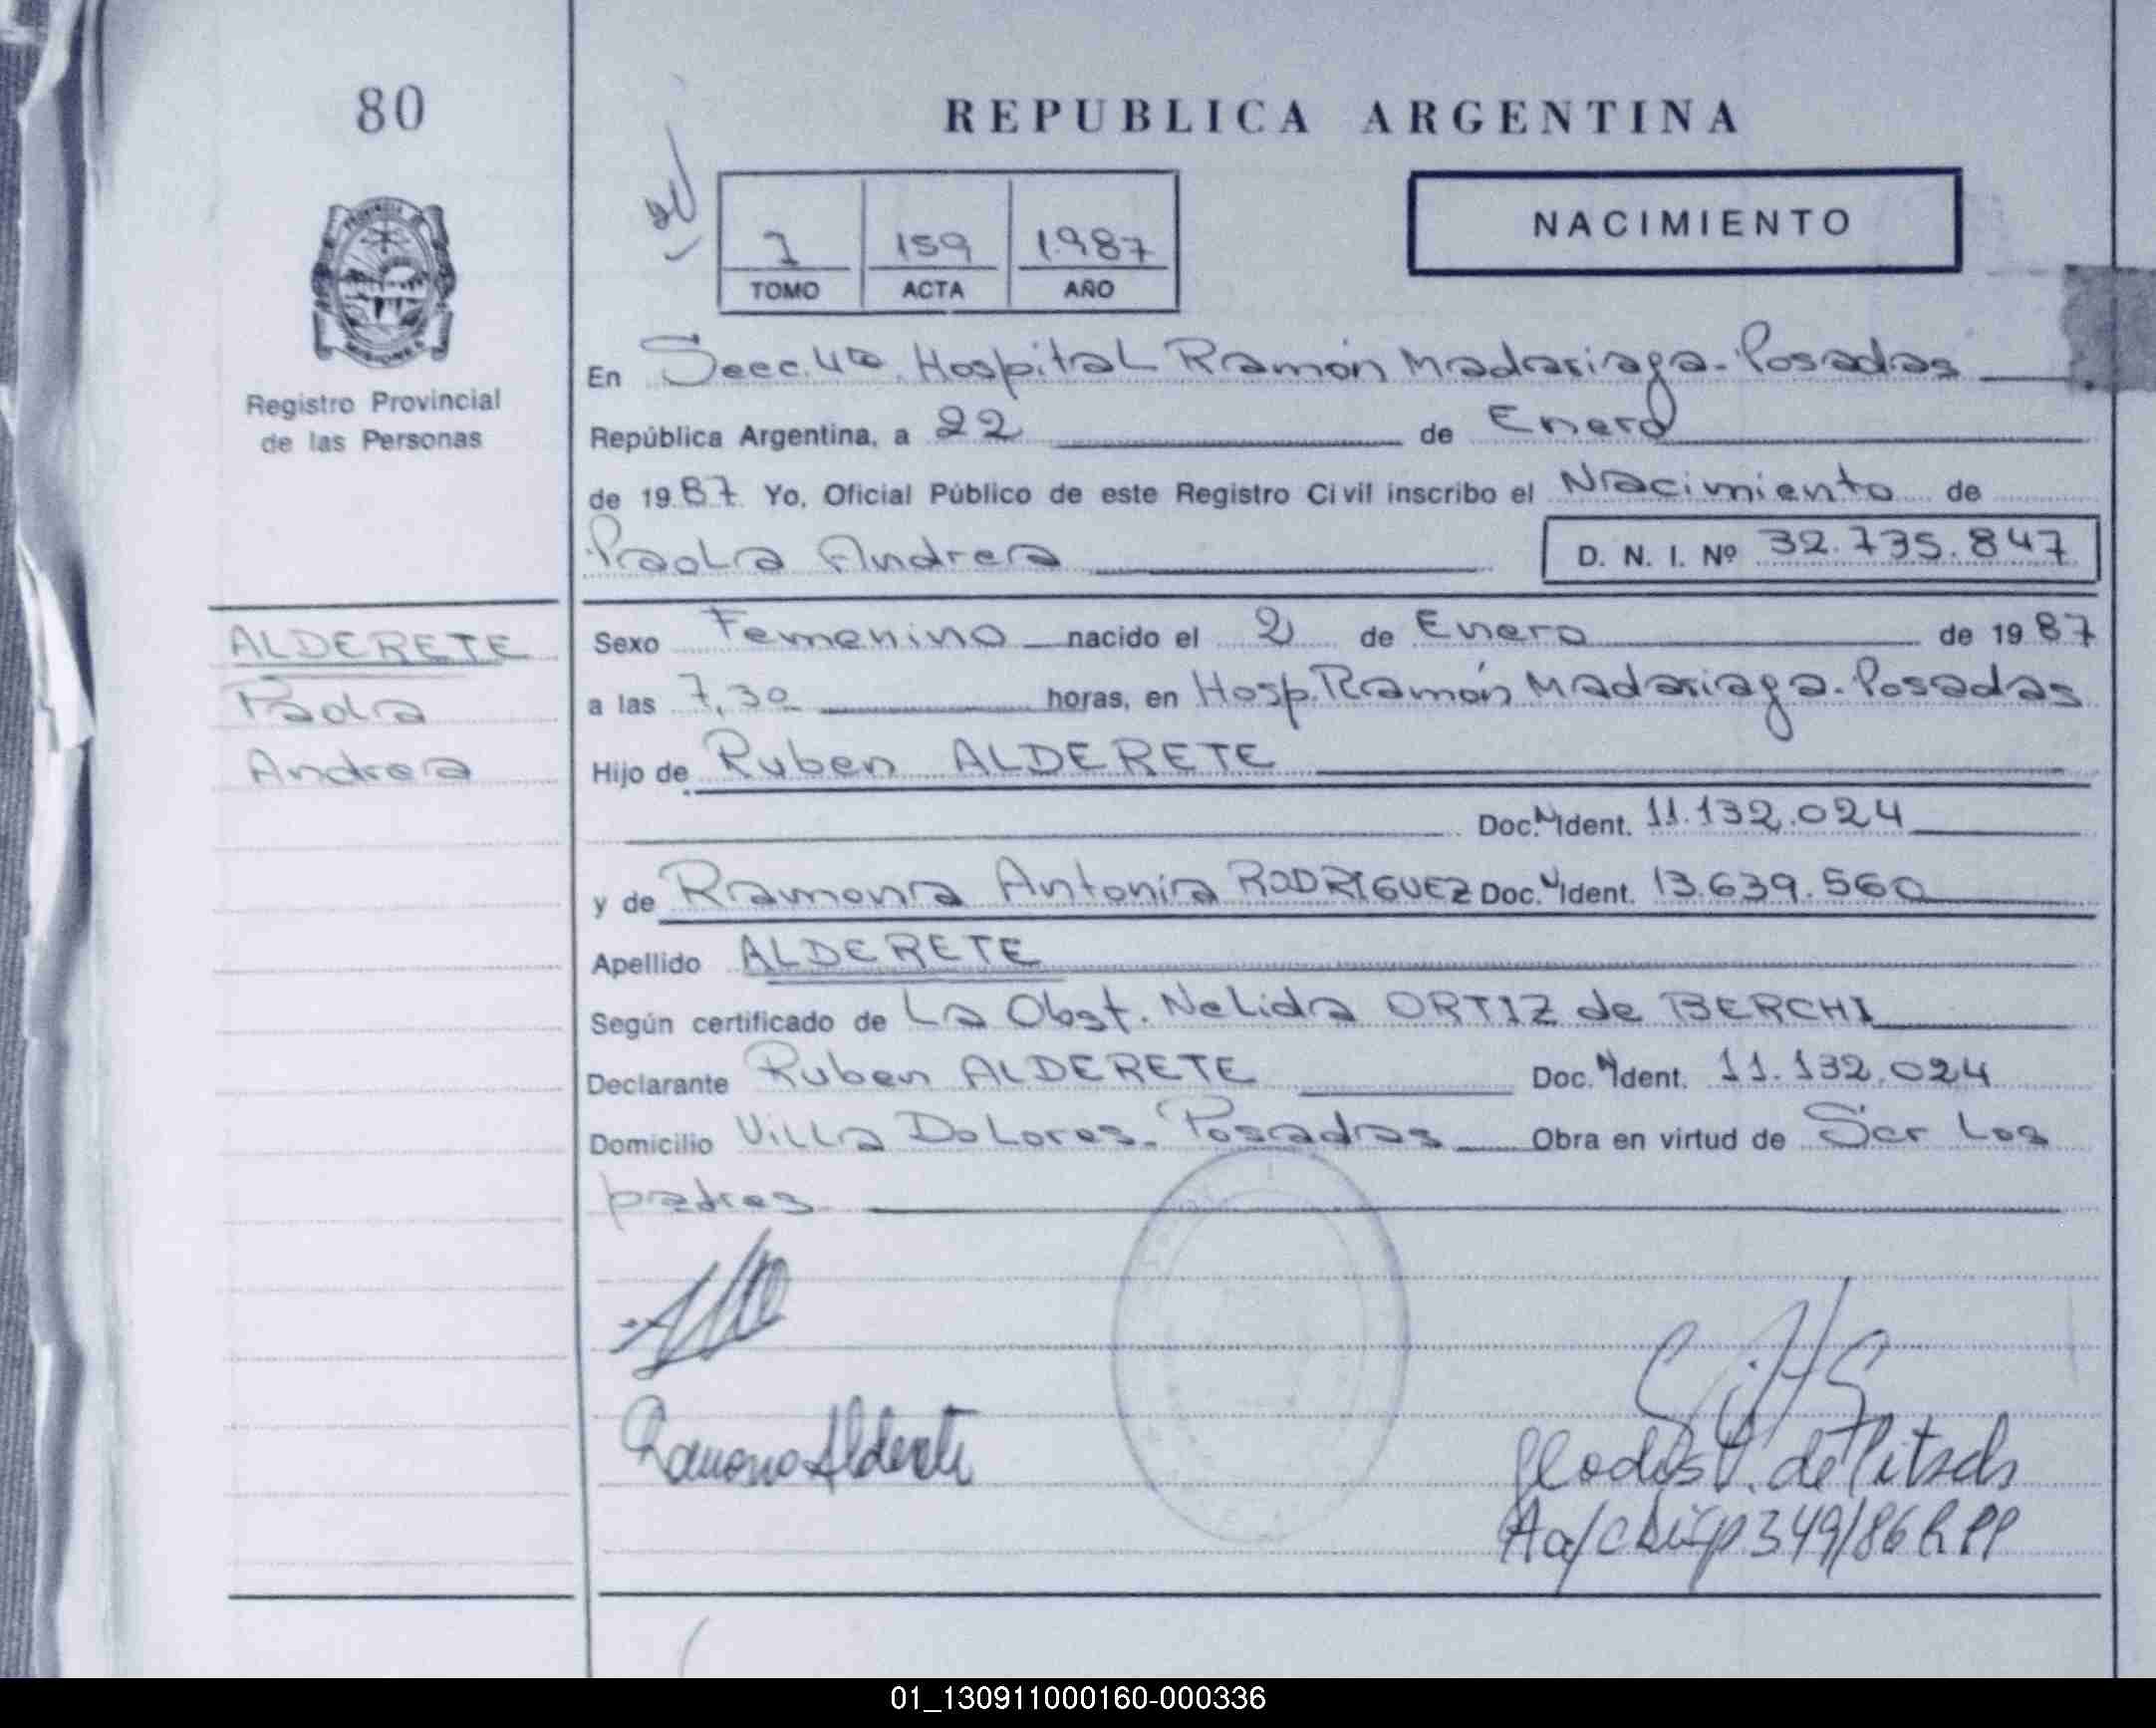 80
REPUBLICA ARGENTINA
PROVINCIA DE
MISIONES
1 159 1987
TOMO ACTA AÑO
NACIMIENTO
Registro Provincial
de las Personas
En Secc. 4ta. Hospital Ramón Madariaga - Posadas
República Argentina, a 22 de Enero
de 1987 Yo, Oficial Público de este Registro Civil inscribo el Nacimiento de
Paola Andrea D. N. I. Nº 32.735.847
ALDERETE
Paola
Andrea
Sexo Femenino nacido el 2 de Enero de 1987
a las 7,30 horas, en Hosp. Ramón Madariaga - Posadas
Hijo de Ruben ALDERETE
Doc. N Ident. 11.132.024
y de Ramona Antonia RODRIGUEZ Doc. N Ident. 13.639.560
Apellido ALDERETE
Según certificado de La Obst. Nelida ORTIZ de BERCHI
Declarante Ruben ALDERETE Doc. N Ident. 11.132.024
Domicilio Villa Dolores - Posadas Obra en virtud de Ser los
padres
Ramona Alderete
349/86 RPP
01_130911000160-000336